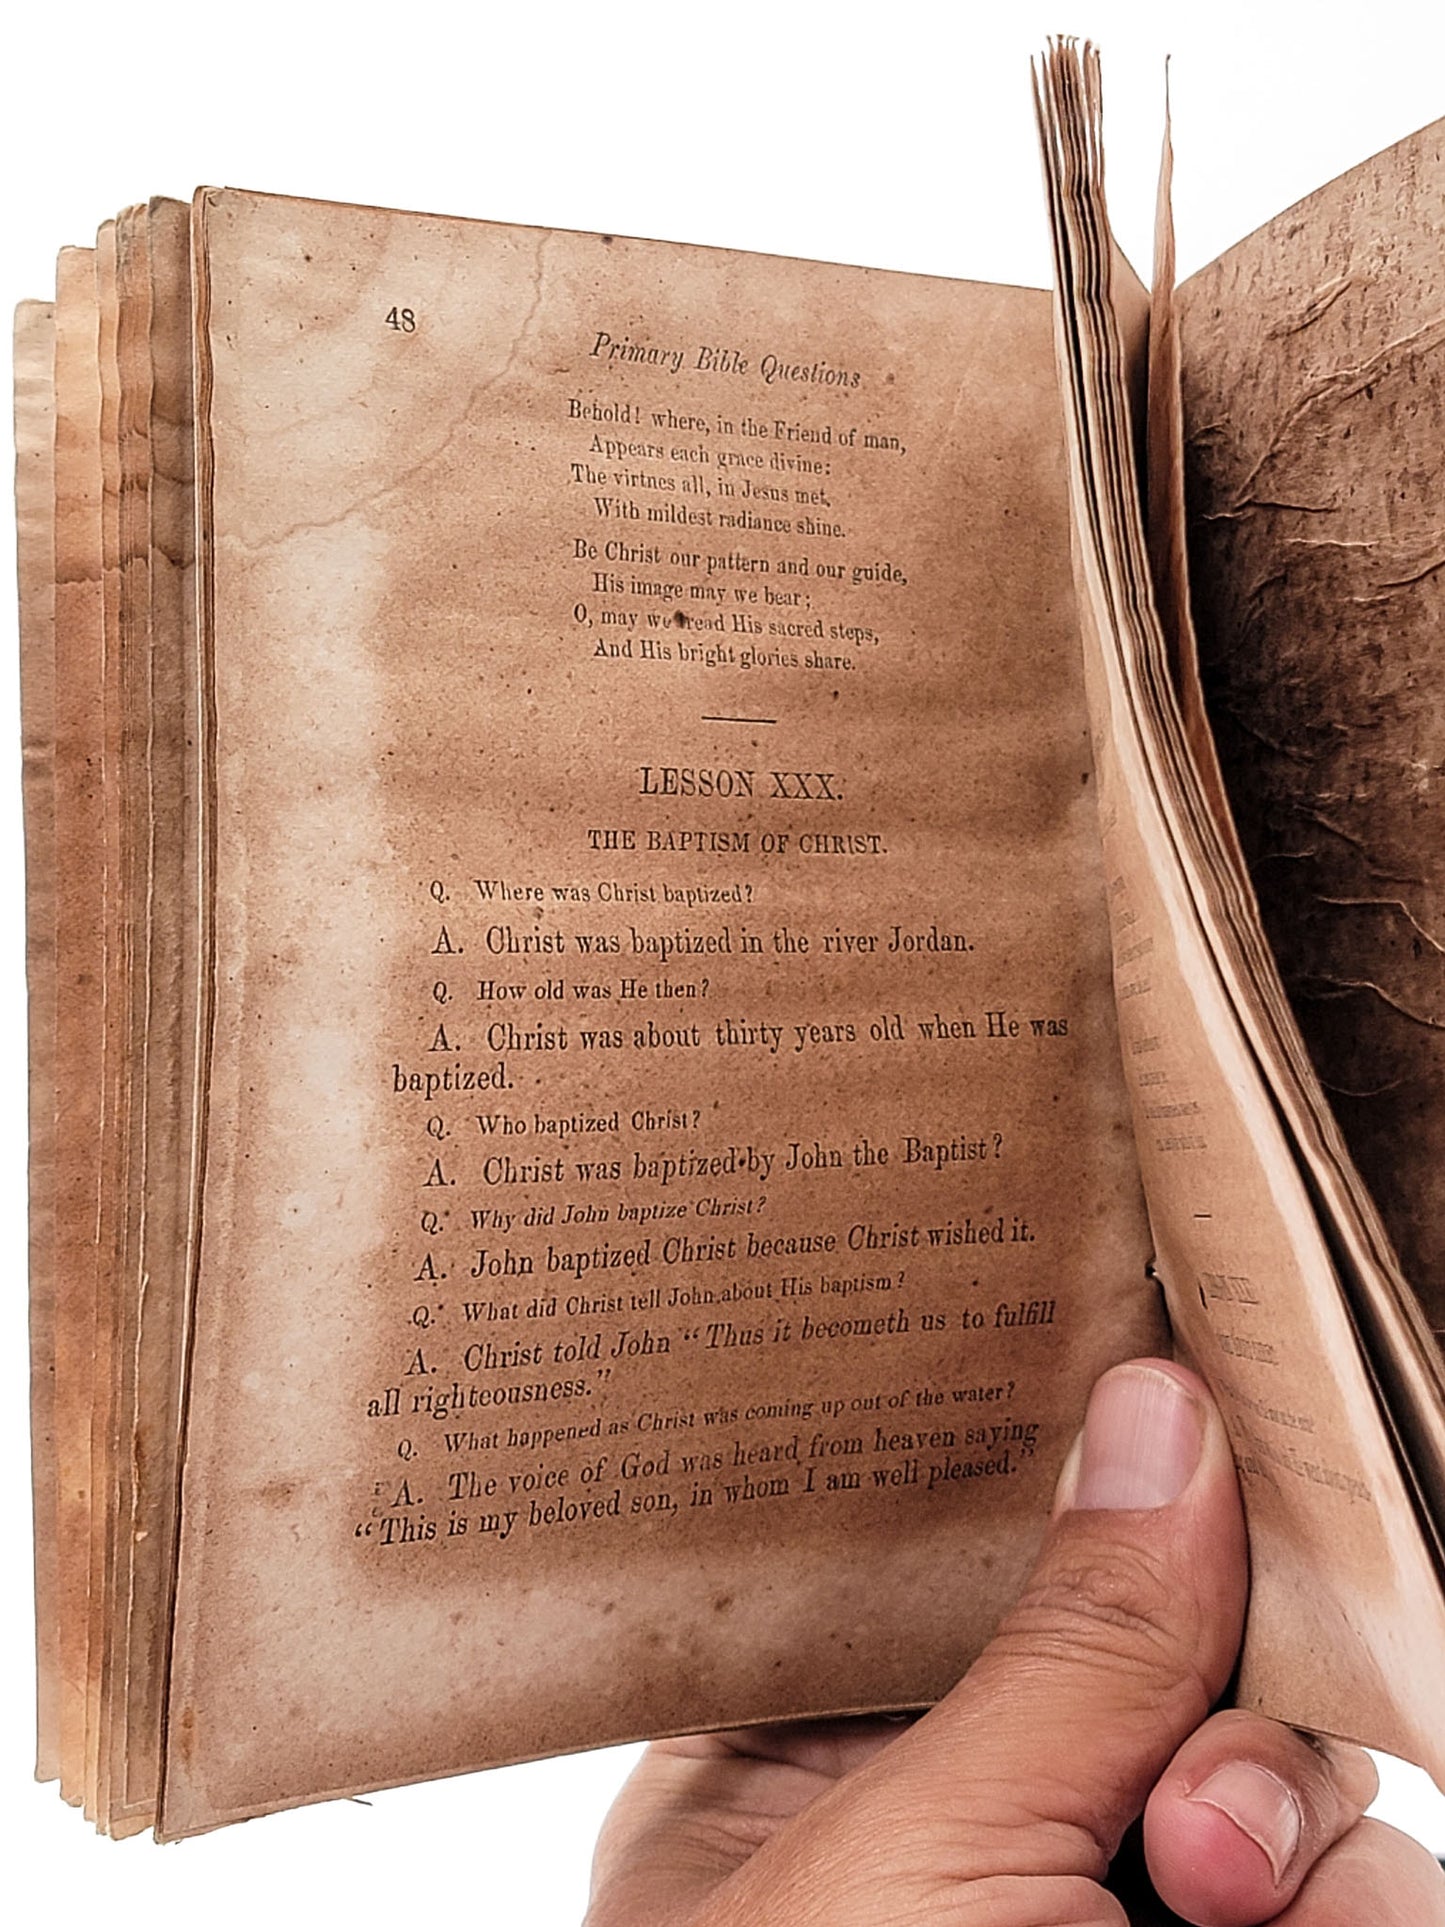 48
Primary Bible Questions
Behold! where, in the Friend of man,
Appears each grace divine:
The virtnes all, in Jesus met,
With mildest radiance shine.
Be Christ our pattern and our guide,
His image may we bear;
O, may we tread His sacred steps,
And His bright glories share.
LESSON XXX.
THE BAPTISM OF CHRIST.
Q. Where was Christ baptized?
A. Christ was baptized in the river Jordan.
Q. How old was He then?
A. Christ was about thirty years old when He was
baptized.
Q. Who baptized Christ?
A. Christ was baptized by John the Baptist?
Q. Why did John baptize Christ?
A. John baptized Christ because Christ wished it.
Q. What did Christ tell John about His baptism?
A. Christ told John “Thus it becometh us to fulfill
all righteousness.”
Q. What happened as Christ was coming up out of the water?
A. The voice of God was heard from heaven saying
“This is my beloved son, in whom I am well pleased.”